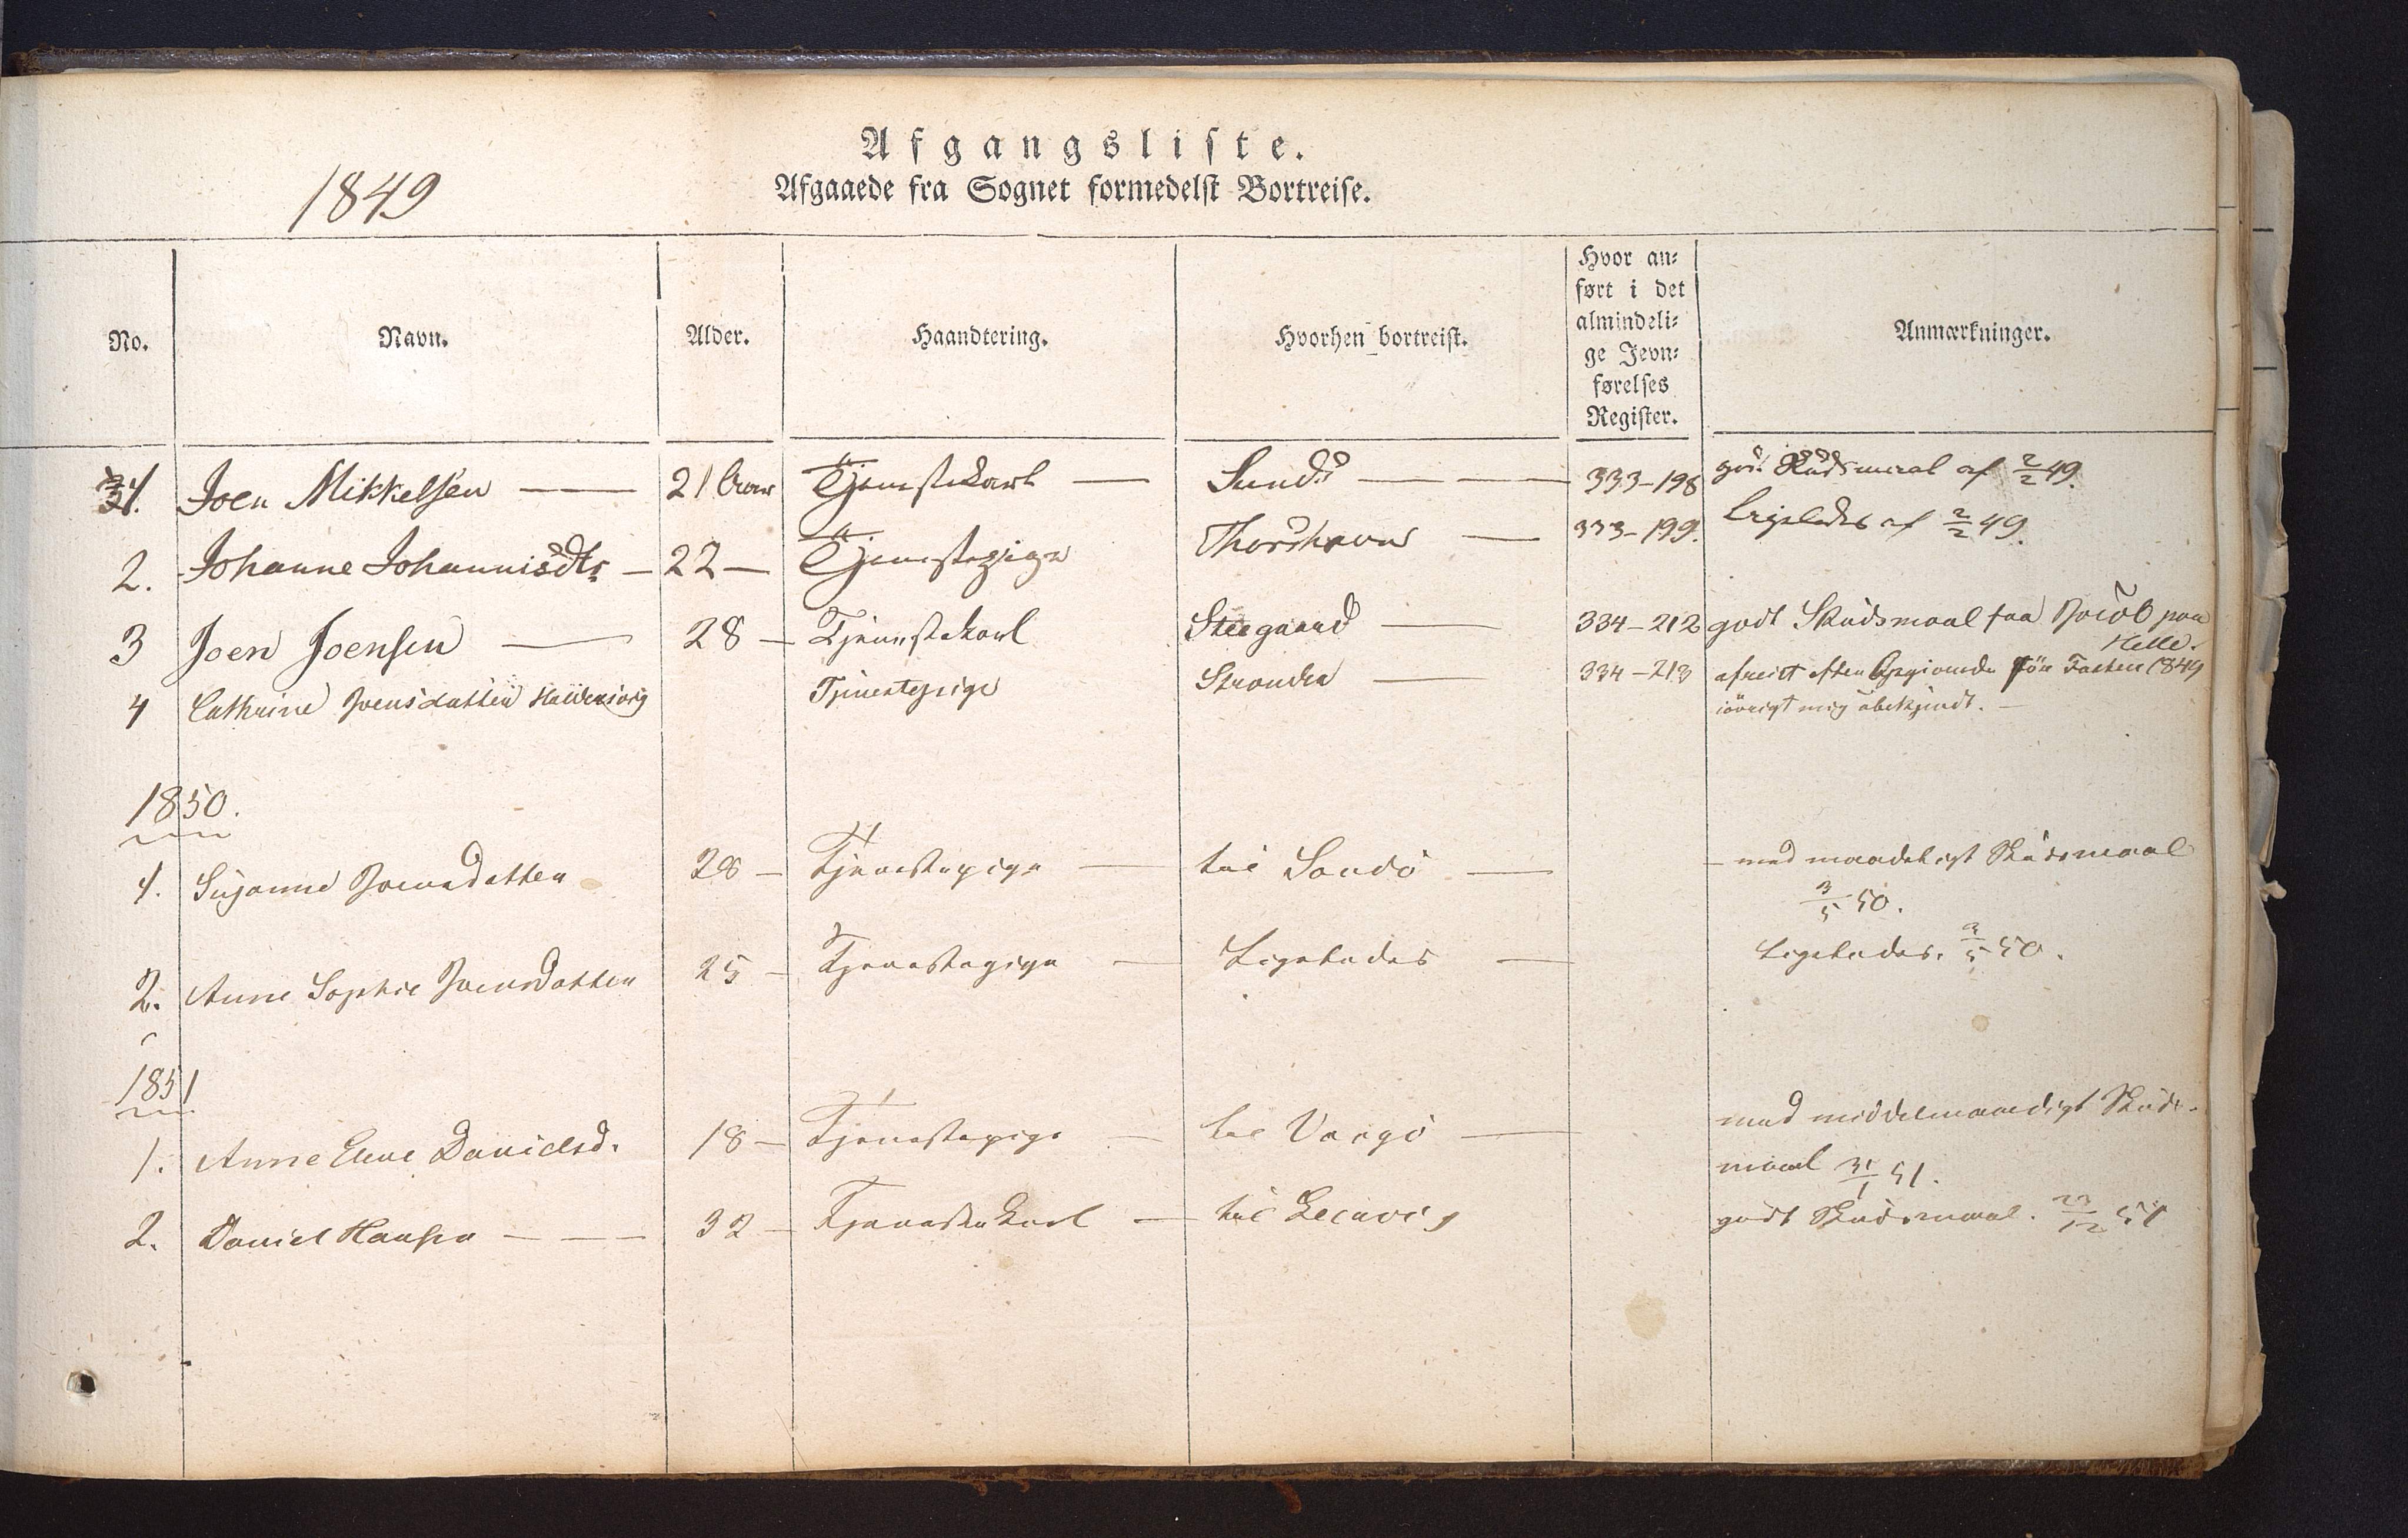 Afgangsliste.
1849
Afgaaede fra Sognet formedelst Bortreise.
No. Navn. Alder. Haandtering. Hvorhen bortreist. Hvor an-
ført i det
almindeli-
ge Jevn-
førelses
Register. Anmærkninger.
1. Joen Mikkelsen — 21 Aar Tjenestekarl — Sund — 333-198 godt Skudsmaal af 2/2 49.
2. Johanne Johannisdtr — 22 — Tjenestepige Thorshavn — 333-199. Ligeledes af 2/2 49.
3 Joen Joensen — 28 — Tjenestekarl Steegaard — 334-212 godt Skudsmaal fra Jacob paa
Kelle.
4 Cathrine Joensdatter Haldersvig Tjenestepige Strander — 334-213 afreist efter Opgivende før Fasten 1849
iøvrigt mig ubekjendt. —
1850.
1. Susanne Joensdatter 28 — Tjenestepige — til Sandø — — med maadeligt Skudsmaal
3/5 50.
2. Anne Sophie Joensdatter 25 — Tjenestepige — Ligeledes — Ligeledes. 3/5 50.
1851
1. Anne Elene Danielsd. 18 — Tjenestepige — til Vaagø — med middelmaadigt Skuds-
maal 31/1 51.
2. Daniel Hansen — 32 — Tjenestekarl — til godt Skudsmaal. 23/12 51